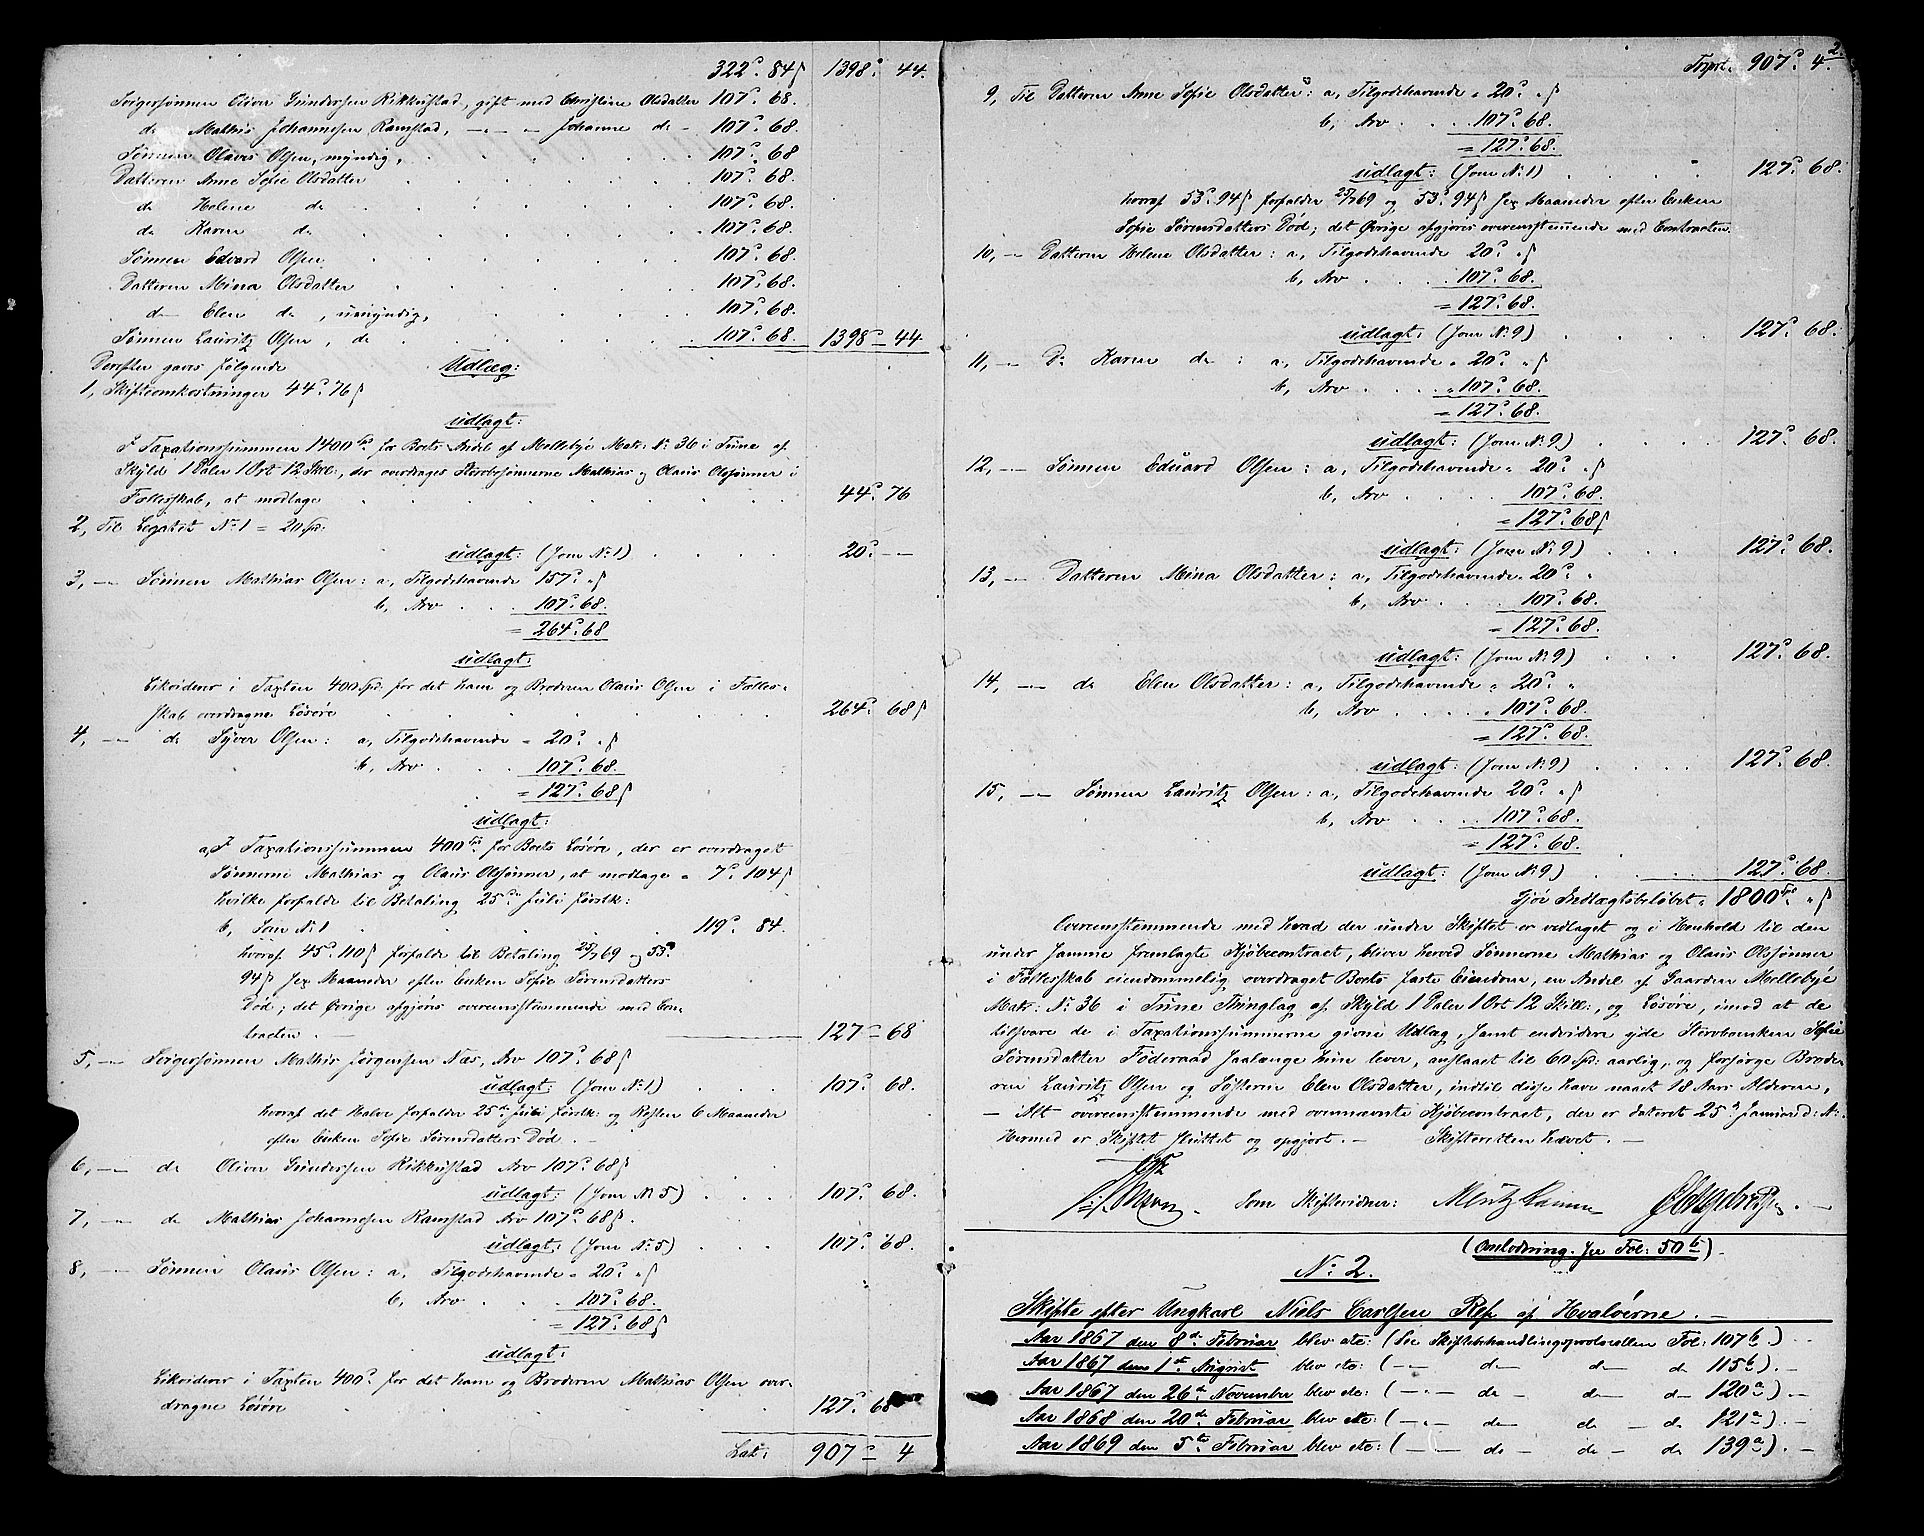 322 " 84ß 1398 " 44.
Svigersønnen Oliver Gundersen Rikkustad, gift med Christine Olsdatter 107 " 68.
do Mathis Johannesen Ramstad, — " — Johanne do - 107 " 68.
Sønnen Olaves Olsen, myndig, 107 " 68
Datteren Anne Sofie Olsdatter 107 " 68.
do Helene do 107 " 68.
do Karen do 107 " 68.
Sønnen Edvard Olsen 107 " 68.
Datteren Mina Olsdatter 107 " 68.
do Elen do, umyndig, 107 " 68.
Sønnen Lauritz Olsen, do 107 " 68. 1398 " 44
Derefter gaves følgende Udlæg:
1, Skifteomkostninger 44 " 76ß
udlagt:
I Taxationssummen 1400 Spd for Boets Andel af Mellebye Matr: No 36 i Tune af
Skyld 1 Daler 1 Ort 12 Skil:, der overdrages Stervbosønnerne Mathias og Olaus Olssønner i
Fællesskab, at modtage 44 " 76
2, Til Legatet No 1 = 20 Spd.
udlagt: (Som No 1) 20 " - -
3, — Sønnen Mathias Olsen: a, Tilgodehavende 157 " " ß
b, Arv 107 " 68.
= 264 " 68
udlagt:
Likviderer i Taxten 400 Spd: for det ham og Broderen Olaus Olsen i Fælles-
skab overdragne Løsøre 264 " 68ß
4, — do Syver Olsen: a, Tilgodehavende = 20 " " ß
b, Arv 107 " 68.
= 127 " 68ß
udlagt:
a, I Taxationssummen 400 Spd for Boets Løsøre, der er overdraget
Sønnerne Mathias og Olaus Olssønner, at modtage = 7 " 104ß
hvilke forfalde til Betaling 25de Juli førstk:
b, Som No 1 119 " 84.
hvoraf 45 " 110ß forfalde til Betaling 25/7 69 og 53 "
94ß sex Maaneder efter Enken Sofie Sørensdatters
Død; det Øvrige opgjøres overensstemmende med Con-
tracten. — 127 - 68
5, — Svigersønnen Mathis Jørgensen Næs, Arv 107 " 68ß
udlagt: (Som No 1) 107 " 68.
hvoraf det Halve forfalder 25de Juli førstk: og Resten 6 Maaneder
efter Enken Sofie Sørensdatters Død. —
6, — do Oliver Gundersen Rikkustad Arv 107 " 68ß
udlagt: (Som No 5) 107 " 68.
7, — do Mathias Johannesen Ramstad Arv 107 " 68ß.
udlagt: (Som No 5) 107 " 68.
8, — Sønnen Olaus Olsen: a, Tilgodehavende = 20 " " ß
b, Arv 107 " 68.
= 127 " 68ß
udlagt:
Likviderer i Taxten 400 " for det ham og Broderen Mathias Olsen over-
dragne Løsøre 127 " 68
Lat: 907 " 4
2.
Trprt. 907 " 4
9, Til Datteren Anne Sofie Olsdatter: a, Tilgodehavende = 20 " " ß
b, Arv 107 " 68.
= 127 " 68.
udlagt: (Som No 1) 127 " 68.
hvoraf 53 " 94ß forfalder 25/7 69 og 53 " 94ß sex Maaneder efter Enken
Sofie Sørensdatters Død; det Øvrige opgjøres overensstemmende med Contracten.
10, — Datteren Helene Olsdatter: a, Tilgodehavende 20 " " ß
b, Arv 107 " 68.
= 127 " 68.
udlagt: (Som No 9) 127 " 68.
11, — Do Karen do: a, Tilgodehavende = 20 " " ß
b, Arv " 107 " 68.
= 127 " 68.
udlagt: (Som No 9) 127 " 68.
12, — Sønnen Eduard Olsen: a, Tilgodehavende = 20 " " ß
b, Arv 107 " 68.
= 127 " 68ß
udlagt: (Som No 9) 127 " 68.
13, — Datteren Mina Olsdatter: a, Tilgodehavende = 20 " "
b, Arv 107 " 68.
= 127 " 68.
udlagt: (Som No 9) 127 " 68.
14, — do Elen Olsdatter: a, Tilgodehavende " 20 " "
b, Arv 107 " 68.
= 127 " 68.
udlagt: (Som No 9) 127 " 68.
15, — Sønnen Lauritz Olsen: a, Tilgodehavende 20 " " ß
b, Arv 107 " 68.
= 127 " 68.
udlagt: (Som No 9) 127 " 68.
Gjør Indlægtsbeløbet = 1800 Spd " ß
Overensstemmende med hvad der under Skiftet er vedtaget og i Henhold til den
under samme fremlagte Kjøbecontract, bliver herved Sønnerne Mathias og Olaus Olssønner
i Fællesskab eiendommelig overdraget Boets faste Eiendom, en Andel af Gaarden Mellebye
Matr: No 36 i Tune Thinglag af Skyld 1 Daler 1 Ort 12 Skill:, og Løsøre, imod at de
tilsvare de i Taxationssummerne givne Udlæg, samt endvidere yde Stervboenken Sofie
Sørensdatter Føderaad saalænge hun lever, anslaaet til 60 Spd: aarlig, og forsørge Brode-
ren Lauritz Olsen og Søsteren Elen Olsdatter, indtil disse have naaet 18 Aars Alderen,
— Alt overensstemmende med ovennævnte Kjøbecontract, der er dateret 25de Januar d: A:
Hermed er Skiftet sluttet og opgjort. — Skifteretten hævet. —
Som Skiftevidner:
(Omlodning. se Fol: 50 b).
No 2.
Skifte efter Ungkarl Niels Carlsen Rød af Hvaløerne. —
Aar 1867 den 8de Februar blev etc: (See Skiftebehandlingsprotocollen Fol: 107 b) —
Aar 1867 den 1ste August blev etc: (— do — do — do 115 b). —
Aar 1867 den 26de November blev etc: (— do — do — do 120 a) —
Aar 1868 den 20de Februar blev etc: (— do — do — do 121 a). —
Aar 1869 den 5te Februar blev etc: (— do — do — do 139 a). —